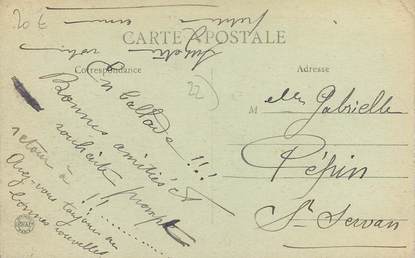 CARTE POSTALE
Correspondance
Adresse
En ballade !!!
Bonnes amitiés et
souhaite prompt
retour à !!
Avez-vous toujours de
bonnes nouvelles
22
M elle Gabrielle
Pépin
St Servan